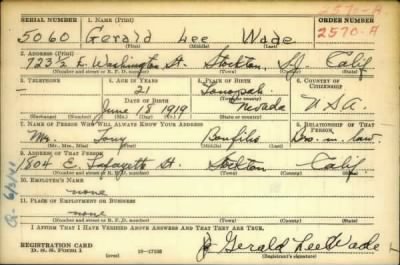 SERIAL NUMBER 1. NAME (Print) ORDER NUMBER
2570-A
5060 Gerald Lee Wade 2570-A
(First) (Middle) (Last)
2. ADDRESS (Print)
723½ E. Washington St. Stockton, S.J. Calif
(Number and street or R. F. D. number) (Town) (County) (State)
3. TELEPHONE 4. AGE IN YEARS 5. PLACE OF BIRTH 6. COUNTRY OF CITIZENSHIP
- 21 Tonopah
DATE OF BIRTH (Town or county)
June 18 1919 Nevada U.S.A.
(Exchange) (Number) (Mo.) (Day) (Yr.) (State or country)
7. NAME OF PERSON WHO WILL ALWAYS KNOW YOUR ADDRESS 8. RELATIONSHIP OF THAT PERSON
Mr. Tony Bro. in law
(Mr., Mrs., Miss) (First) (Middle) (Last)
9. ADDRESS OF THAT PERSON
1804 E. Lafayette St. Stockton Calif
(Number and street or R. F. D. number) (Town) (County) (State)
10. EMPLOYER'S NAME
none
11. PLACE OF EMPLOYMENT OR BUSINESS
none
(Number and street or R. F. D. number) (Town) (County) (State)
I AFFIRM THAT I HAVE VERIFIED ABOVE ANSWERS AND THAT THEY ARE TRUE.
REGISTRATION CARD
D. S. S. Form 1 (over) Gerald Lee Wade
(Registrant's signature)